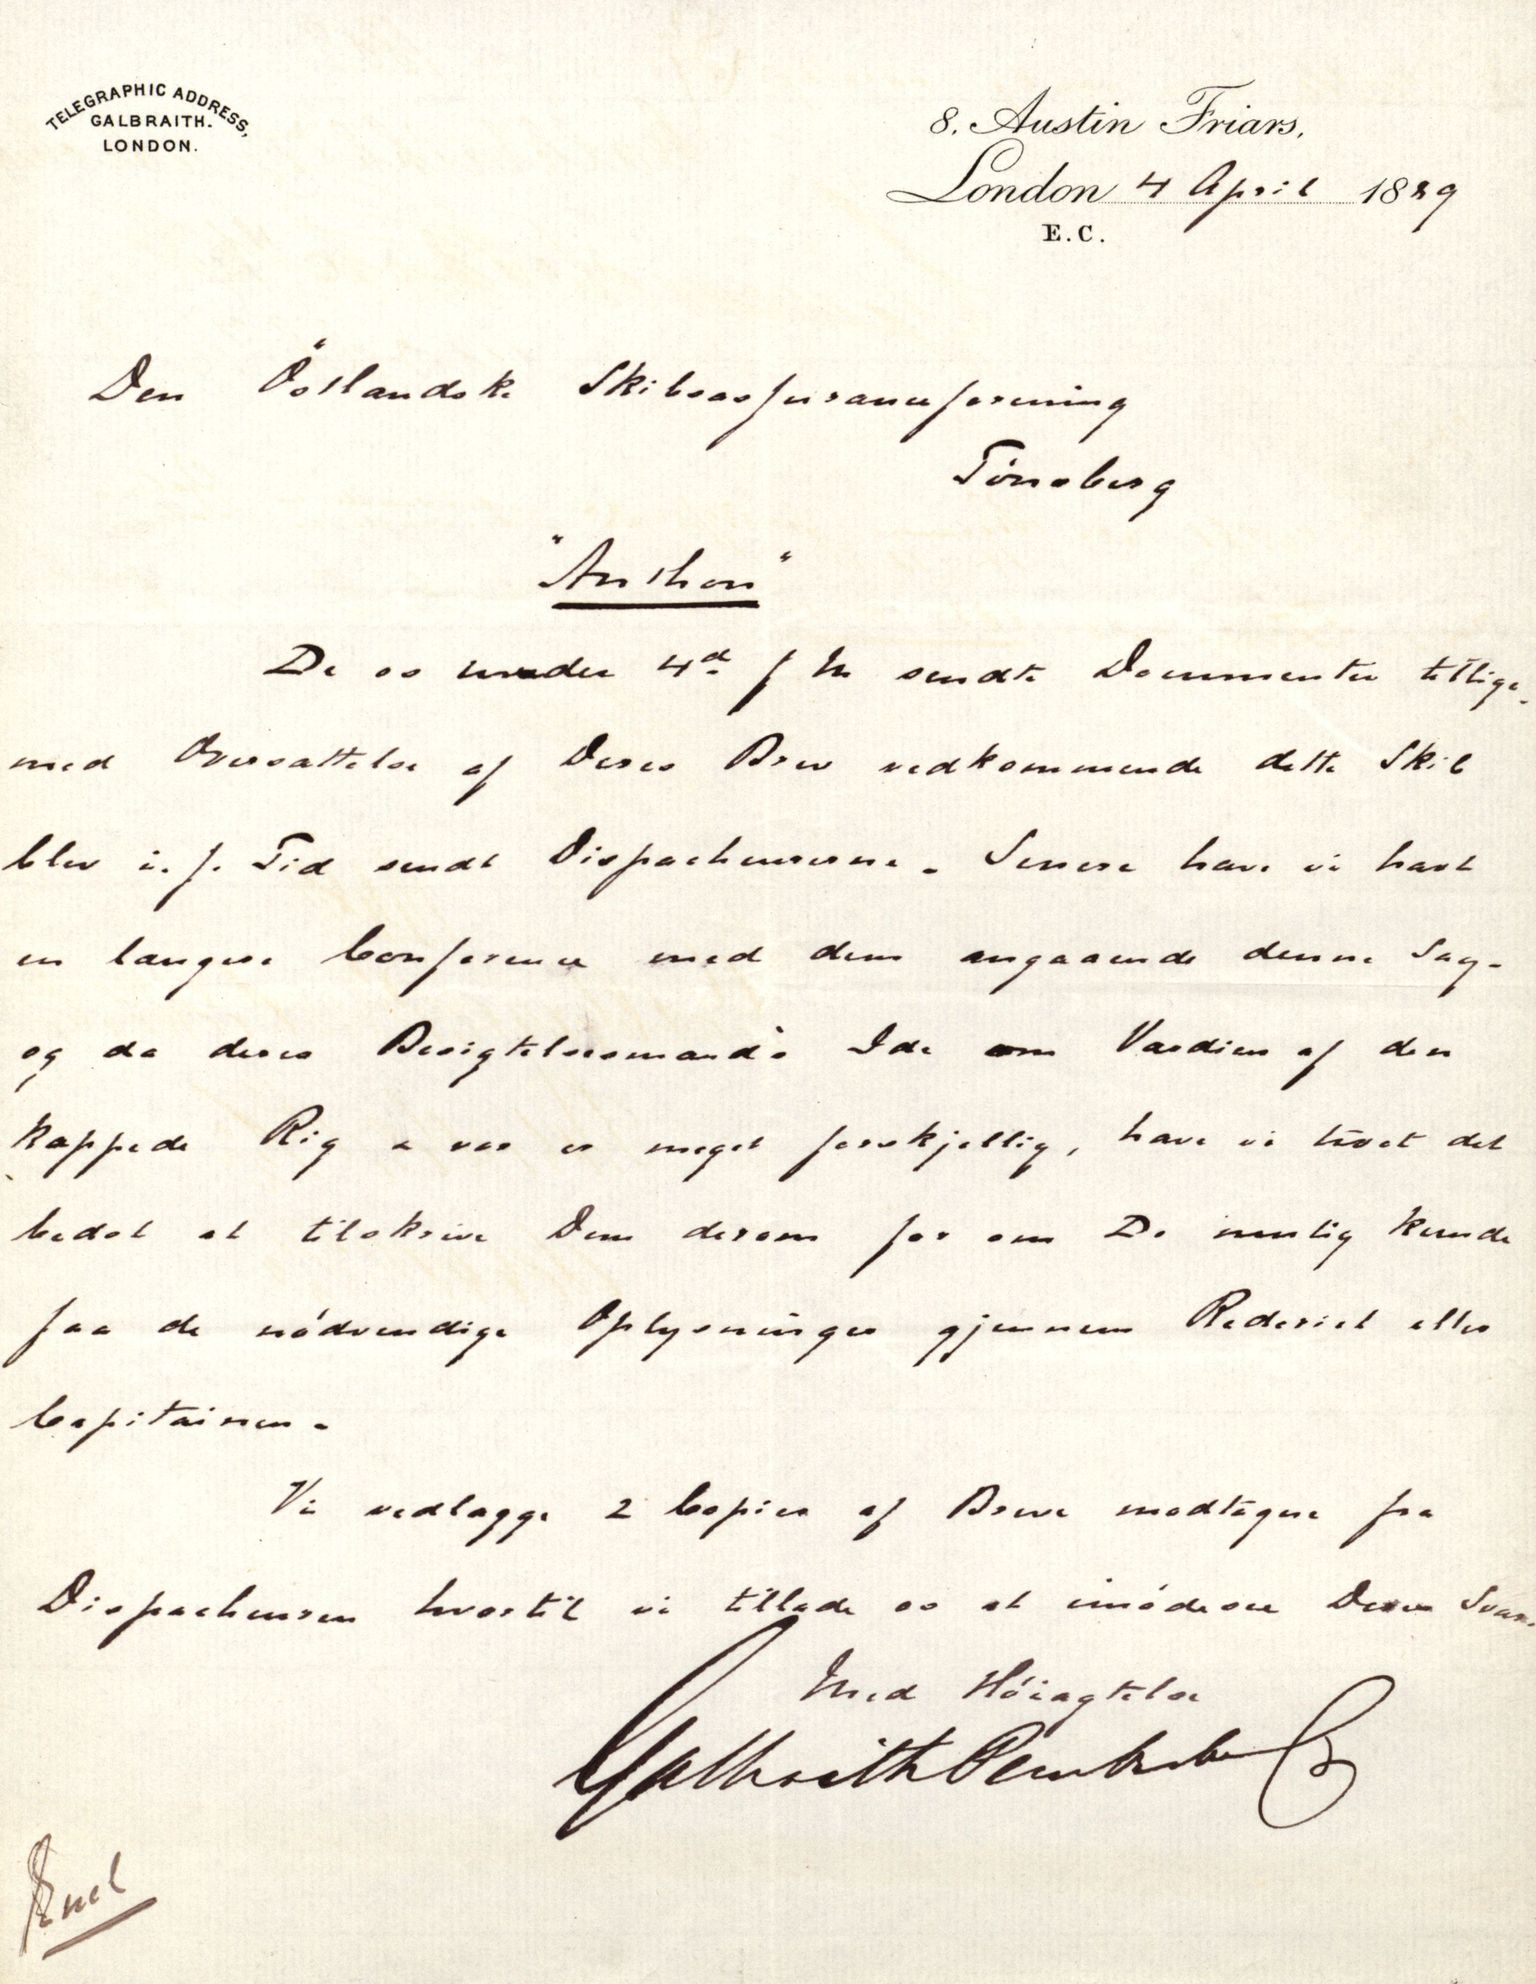 TELEGRAPHIC ADDRESS,
GALBRAITH.
LONDON.
8. Austin Friars,
London 4 April 1889
E.C.
Den Östlandske Skibsassuranceforening
Tönsberg
"Anthon"
De os under 4d f M sendte Documenter tillige-
med Oversattelse af Deres Brev vedkommende dette Skib
blev i. f. Tid sendt Dispacheurerne. Senere have vi havt
en længere Conference med dem angaaende denne Sag-
og da deres Besigtelsesmand's Ide om Værdien af den
kappede Rig &c var es meget forskjellig, have vi troet det
bedst at tilskrive Dem derom for om De muelig kunde
faa de nödvendige Oplysninger gjennem Rederiet eller
Capitainen.
Vi vedlægge 2 Copier af Breve modtagne fra
Dispacheuren hvortil vi tillade os at imödesee Deres Svar.
Med Höiagtelse
Galbraith Pembroke & Co
Encl